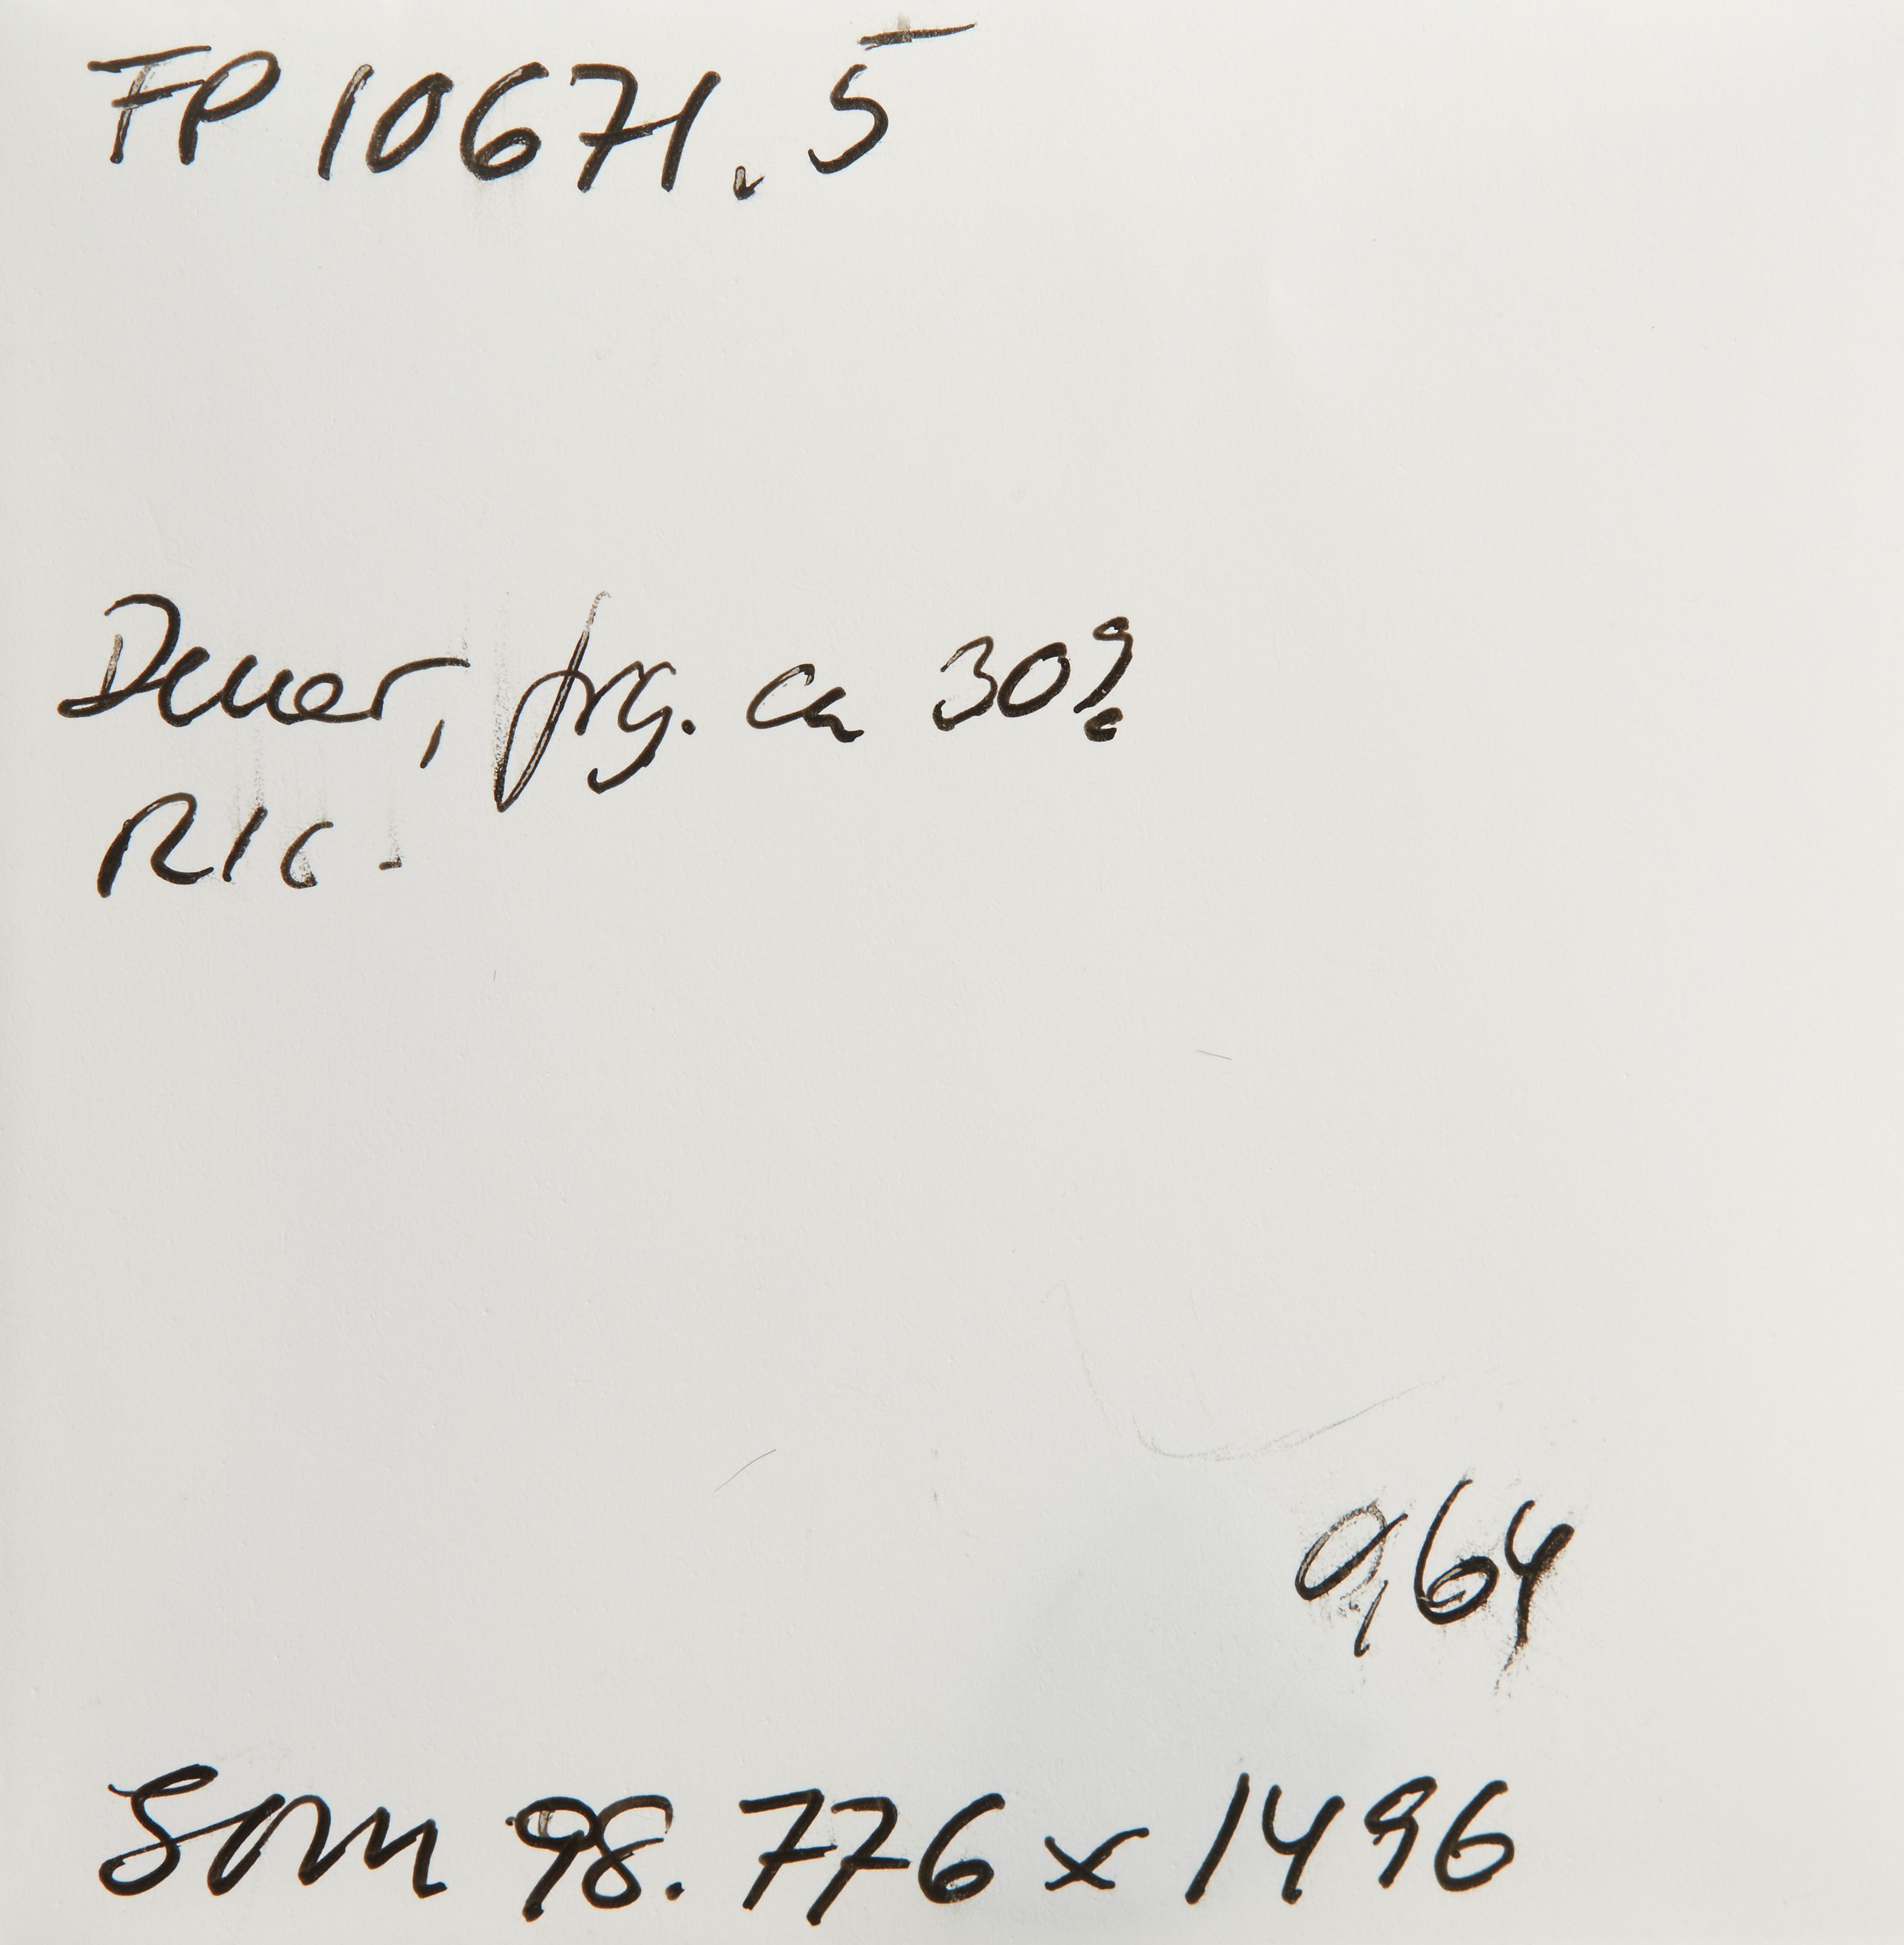 FP 10671.5
Denar, frg. ca 30%
RIC -
0,64
SOM 98.776 x 1496